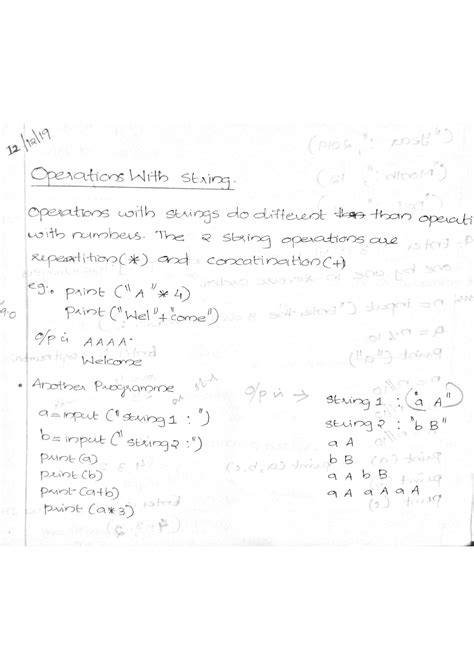 12/12/19
Operations With string.
Operations with strings do different than operati
with numbers. The 2 string operations are
repeatition(*) and concatination(+)
eg:, print ("A"*4)
print ("Wel"+"come")
o/p is AAAA.
Welcome
• Another Programme
a=input ("string1 : ")
b=input ("string2 :")
print(a)
print(b)
print(a+b)
print(a*3)
o/p is → string 1 : ("a A")
string 2 : "b B"
a A
b B
a A b B
a A a A a A